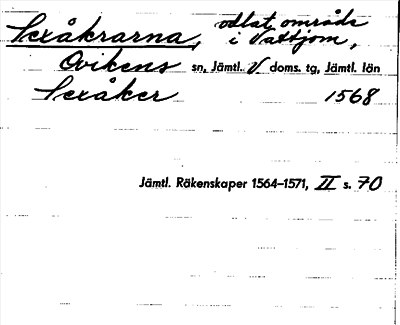 Sexåkrarna, odlat område
i Vattjom,
Ovikens sn, Jämtl. V doms. tg, Jämtl. län
Sexåker 1568
Jämtl. Räkenskaper 1564–1571, II s. 70